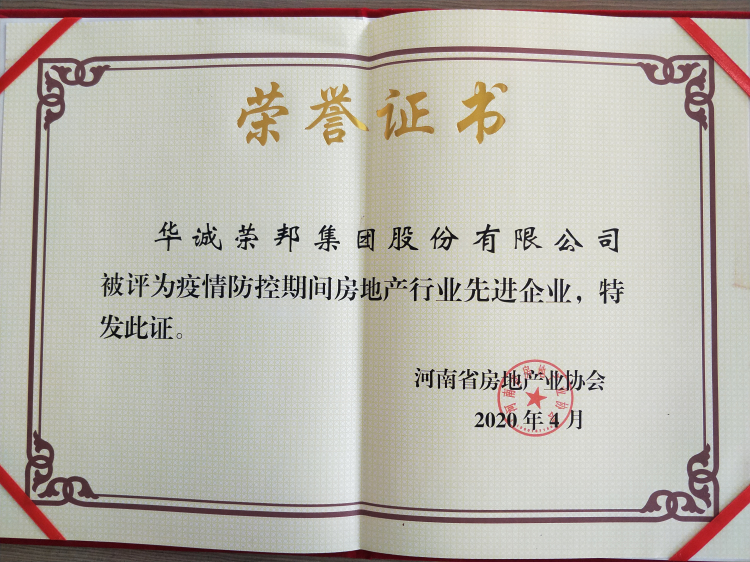 荣誉证书
华诚荣邦集团股份有限公司
被评为疫情防控期间房地产行业先进企业，特
发此证。
河南省房地产业协会
2020年4月
河南省房地产业协会